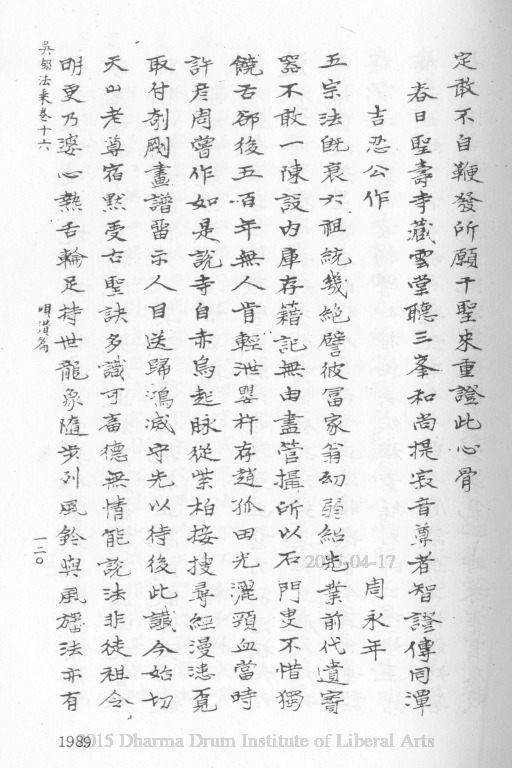 定敢不自鞭發所願千聖來重證此心骨
春日聖壽寺藏雲堂聽三峯和尚提寂音尊者智證傳同潭
吉忍公作
周永年
五宗法既衰六祖統幾絕譬彼冨家翁幼弱紹先業前代遺寶
器不敢一陳設内庫存籍記無由盡管攝所以石門叟不惜獨
饒舌邵後五百年無人肯輕泄嬰杵存趙孤田光灑頸血當時
許彥周曾作如是說寺自赤烏起脉從紫柏接搜尋經漫漶覓
取付剞劂畫譜留示人目送歸鴻滅守先以待後此讖今始切
天山老尊宿黙受古聖訣多識可畜德無情能說法非徒祖令
明更乃婆心熱舌輪足持世龍象隨步列風鈴與風旛法亦有
吳都法乘卷十六
唄讃篇
一二〇
2015-04-17
1989
2015 Dharma Drum Institute of Liberal Arts